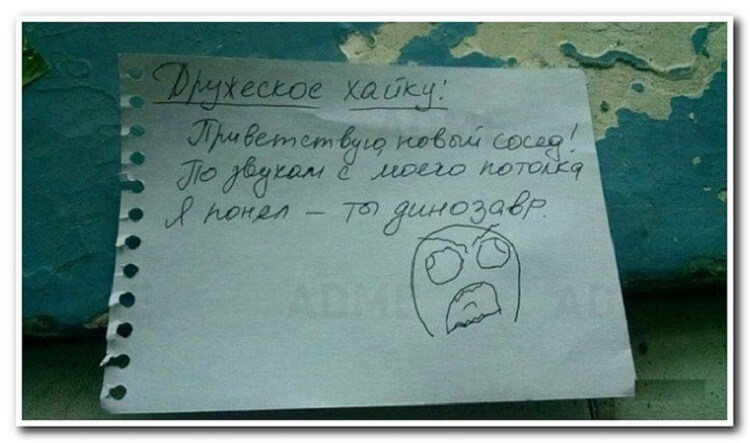 Дружеское хайку:
Приветствую, новый сосед!
По звукам с моего потолка
Я понял – ты динозавр.
ADME
AD